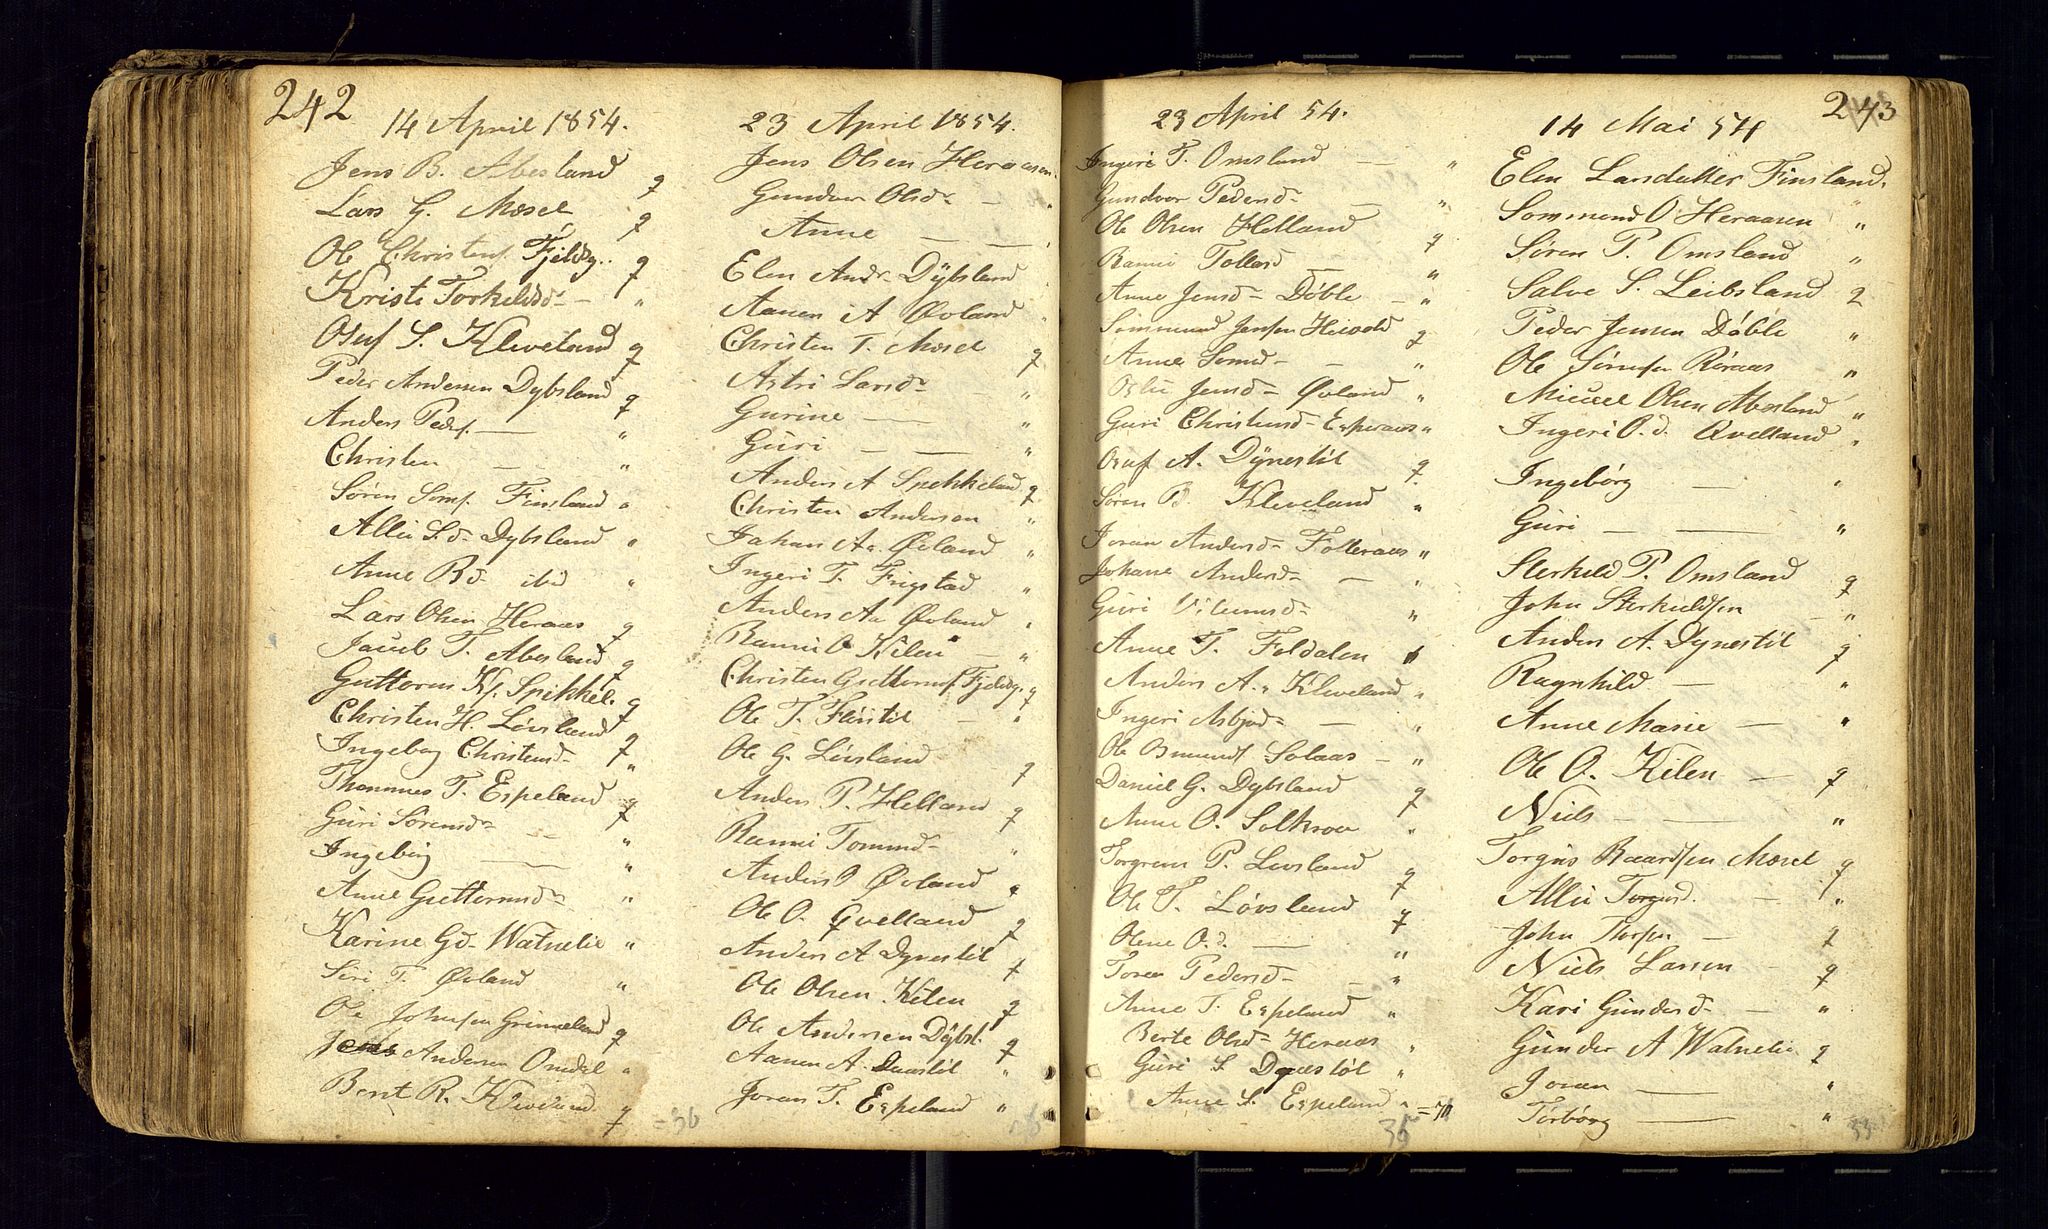 242
14 April 1854.
Jens B. Abesland q
Lars G. Mosel q
Ole Christens. Fjeldsg. q
Kristi Torkelsd - "
Osuf S. Kleveland q
Peder Andersen Dybsland q
Anders Peders. — "
Christen — "
Sören Soms. Finsland "
Allis S.d. Dybsland "
Anne Bd. ibid "
Lars Olsen Heraas q
Jacob T. Abesland q
Guttorm K. Spikkel. q
Christen H. Lövsland q
Ingebog Christensd - "
Thommes T. Espeland q
Guri Sörensd - "
Ingebög — "
Anne Guttormsd - "
Karine Gd. Watnelie "
Siri T. Øvland "
Ole Johnsen Grimeland q
Jens Andersen Omdal "
Bent R. Kleveland q = 36
23 April 1854.
Jens Olsen Heraasen
Gundvor Olsd - "
Anne — — "
Elen Andr. Dÿbsland
Aanen A Øvland
Christen T. Mosel q
Astri Larsd - "
Gurine — "
Guri — — "
Anders A Spekkeland q
Christen Andersen "
Johan Aa. Øvland "
Ingeri T. Frigstad "
Anders Aa Øvland "
Ranni O Kilen — "
Christen Guttorms. Fjeldsg. q
Ole T. Flöistöl — "
Ole G. Lövsland q
Anders P. Helland q
Ranni Tommd - "
Anders P Øvland q
Ole O. Qvelland q
Anders A Dynestöl q
Ole Olsen Kilen q
Ole Andersen Dÿbsl. q
Aanen A. Dunstöl "
Joran T. Espeland "
23 April 54.
Ingeri T. Omsland — "
Gundvor Pedersd - "
Ole Olsen Helland q
Ranni Tollesd — "
Anne Jensd - Döble - "
Sömmund Jensen Heivold q
Anne Somd - - "
Aslu Jensd - Øvland "
Guri Christensd - Esperaas "
Osuf A. Dÿnestöl q
Sören Pd Kleveland "
Joran Andersd - Folleraas "
Johane Andersd - — "
Guri Vilumsd - "
Anne T. Foldalen "
Anders A. Kleveland "
Ingeri Asbjnd - — "
Ole Osmunds. Solaas - "
Daniel G. Dybsland q
Anne O. Solknoa "
Torgrim P. Lövsland q
Ole T. Lövsland q
Olene O.d. — "
Toran Pedersd - — "
Anne T. Espeland "
Berte Olsd - Heraas "
Guri S Dynestöl "
Anne S. Espeland " = 71
36
243
14 Mai 54
Elen Larsdatter Finsland "
Sommund O Heraasen "
Sören P. Omsland "
Salve S. Leibsland q
Peder Jensen Döble "
Ole Sörensen Röraas "
Mickel Olsen Abesland "
Ingeri O.d. Qvelland "
Ingebörg — "
Guri — — "
Sterkild P. Omsland q
John Sterkildsen - "
Anders A. Dynestöl q
Ragnhild — "
Anne Marie — "
Ole O. Kilen — q
Niels — — "
Torgus Baardsen Mosel q
Allis Torgusd. — "
John Thorsen — q
Niels Larsen - q
Kari Gundersd - — "
Gunder A Watnelie q
Joran — "
Torbörg — "
33